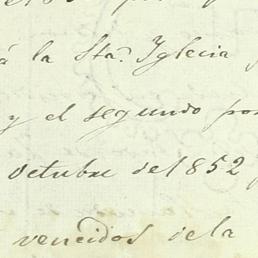 á la Sta. Yglesia
y el segundo por
octubre del 1852
vencidos dela